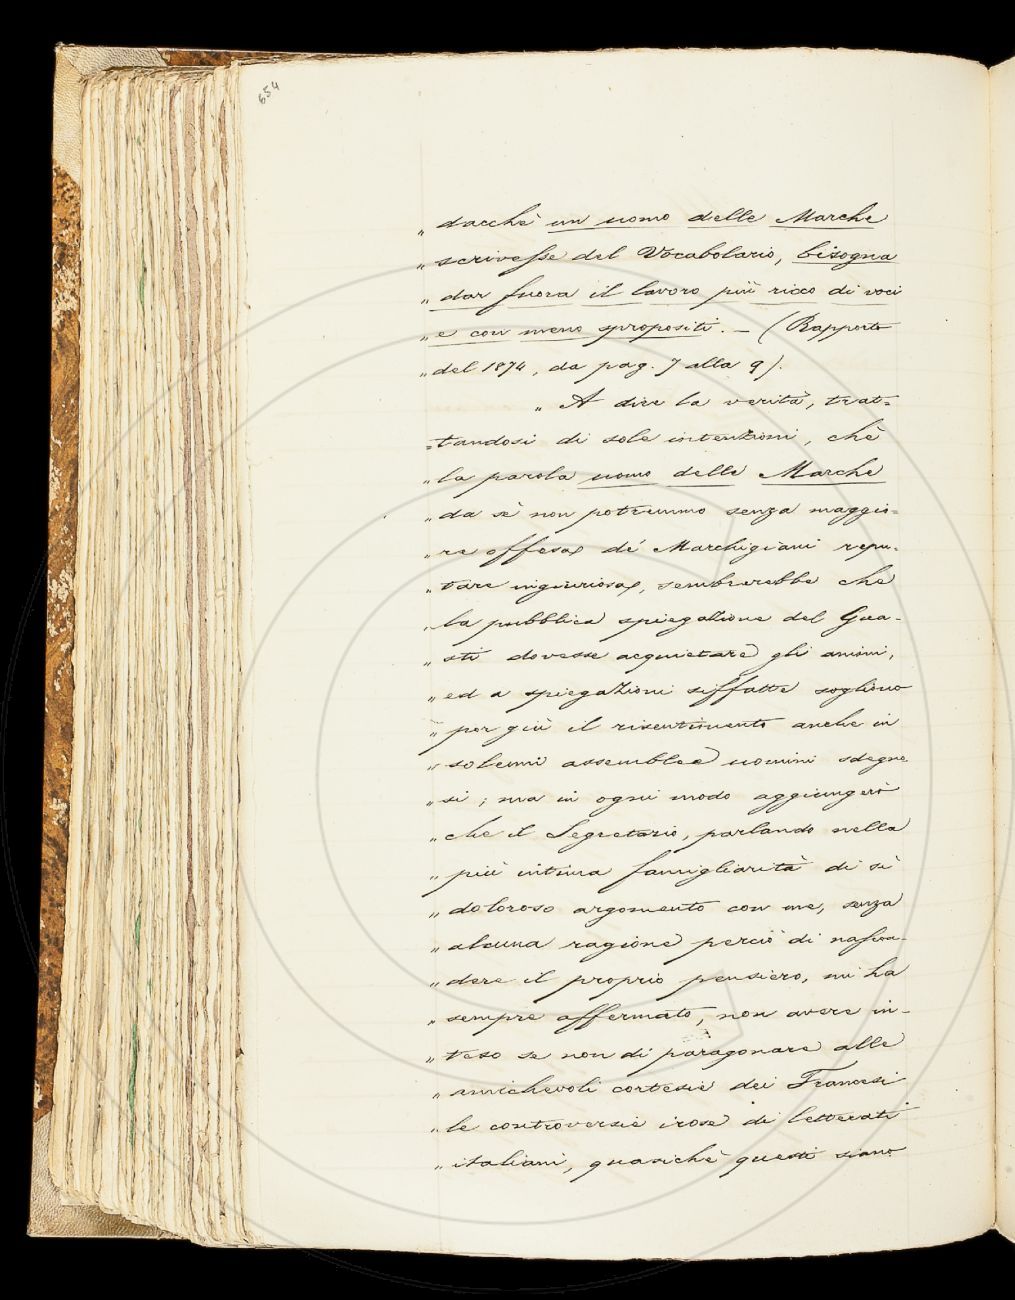 654
„ dacchè un uomo delle Marche
„ scrivesse del Vocabolario, bisogna
„ dar fuora il lavoro più ricco di voci
„ e con meno spropositi. – (Rapporto
„ del 1874, da pag. 7 alla 9).
„ A dire la verità, trat=
=tandosi di sole intenzioni, chè
„ la parola uomo delle Marche
„ da sè non potremmo senza maggio=
„ re offesa de' Marchigiani repu-
„ tare ingiuriosa, sembrerebbe che
„ la pubblica spiegazione del Gua-
„ sti dovesse acquietare gli animi,
„ ed a spiegazioni siffatte sogliono
„ por giù il risentimento anche in
„ solenni assemblee uomini sdegno
„ si; ma in ogni modo aggiungerò
„ che il Segretario, parlando nella
„ più intima famigliarità di sì
„ doloroso argomento con me, senza
„ alcuna ragione perciò di nascon-
„ dere il proprio pensiero, mi ha
„ sempre affermato, non avere in-
„ teso se non di paragonare alle
„ amichevoli cortesie dei Francesi
„ le controversie irose di letterati
„ italiani, quasichè questi siano